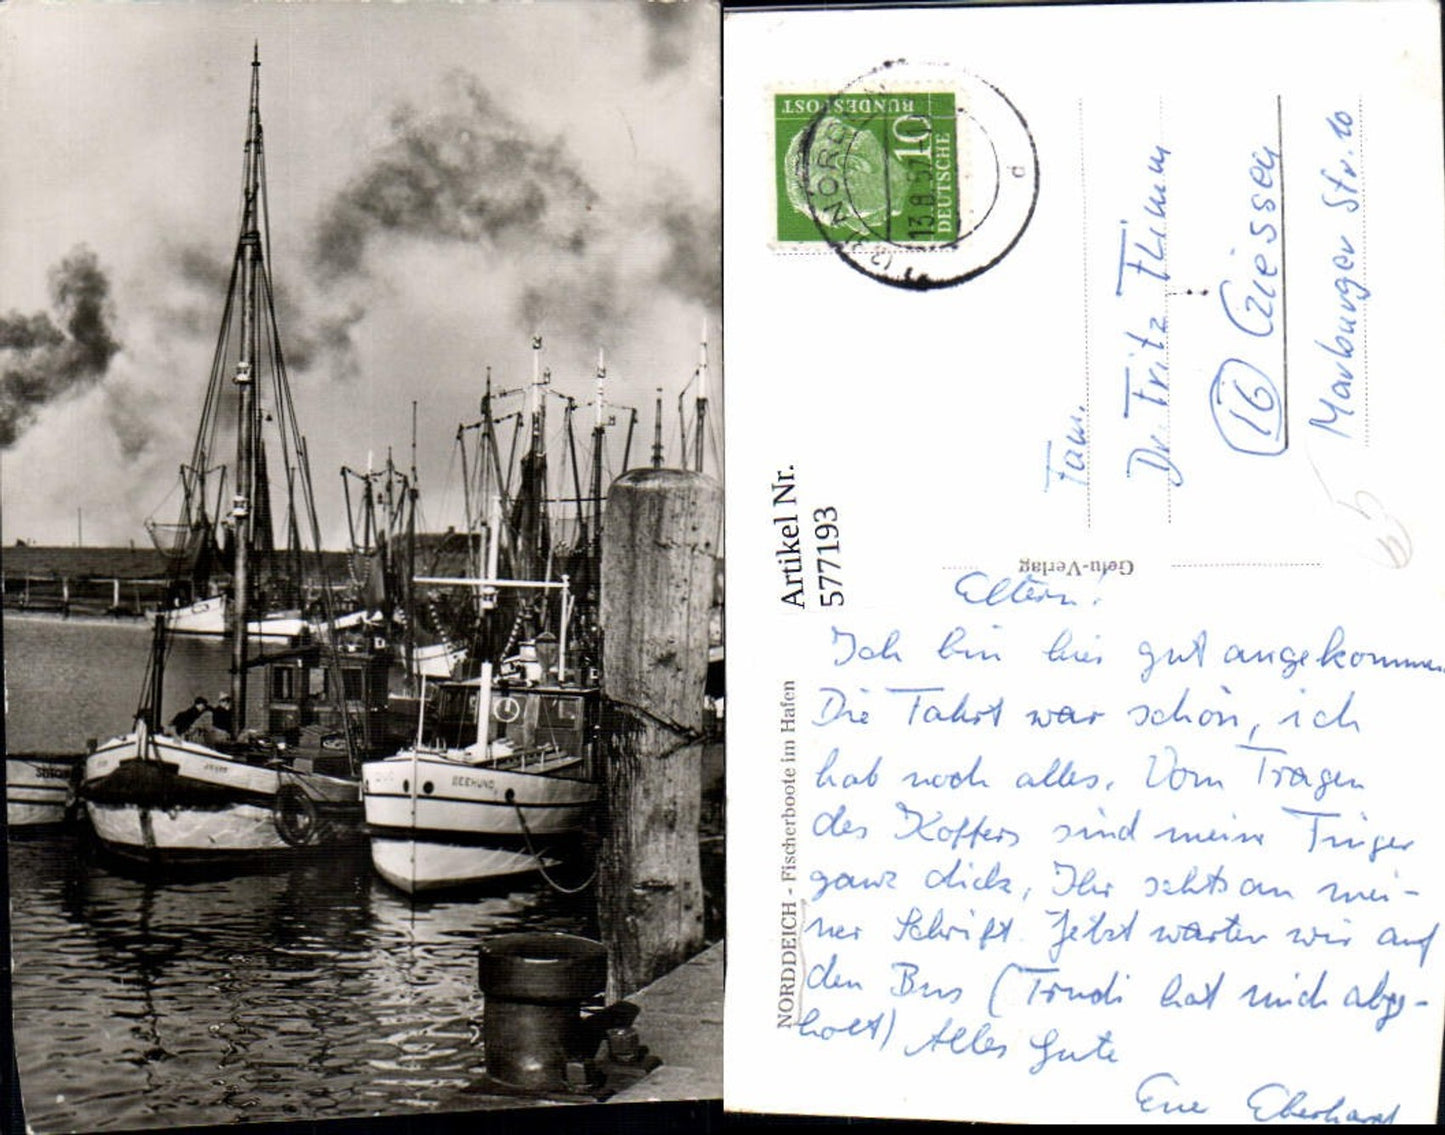 SEEHUND
BUNDESPOST
10
DEUTSCHE
NORDEN
13.8.57
d
Fam.
Dr. Fritz Thimm
(16) Giessen
Marburger Str. 10
Artikel Nr.
577193
Gefu-Verlag
NORDDEICH - Fischerboote im Hafen
Eltern!
Ich bin hier gut angekommen.
Die Fahrt war schön, ich
hab noch alles. Vom Tragen
des Koffers sind meine Finger
ganz dick, Ihr sehts an mei-
ner Schrift. Jetzt warten wir auf
den Bus (Trudi hat mich abge-
holt) Alles Gute
Eue Eberhard